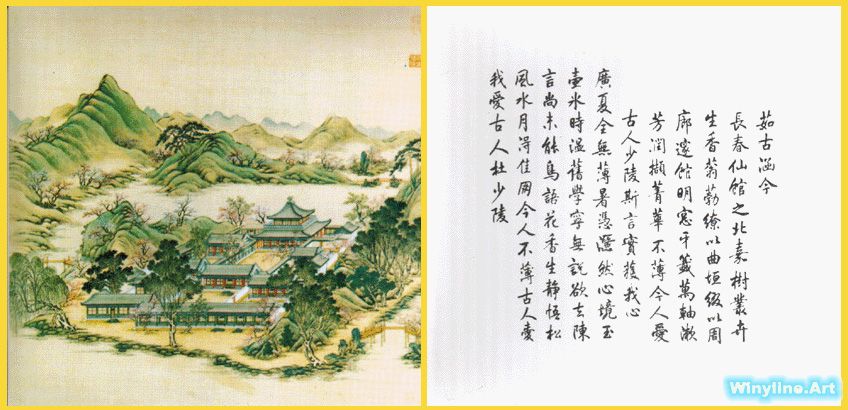 茹古涵今
長春仙館之北嘉樹叢卉
生香蓊葧繚以曲垣綴以周
廊邃館明窓牙籤萬軸漱
芳潤擷菁華不薄今人愛
古人少陵斯言實獲我心
廣夏全無薄暑憑灑然心境玉
壺氷時溫舊學寧無說欲去陳
言尚未能鳥語花香生靜悟松
風水月得佳朋今人不薄古人愛
我愛古人杜少陵
Winyline.Art